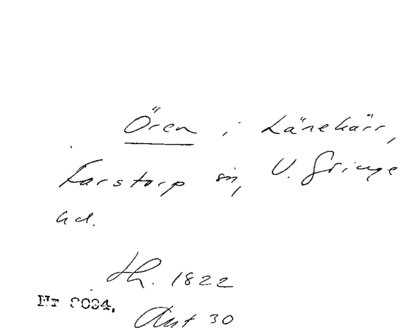 Ören i Länekärr,
Farstorp sn, V. Göinge
hd.
Th. 1822
Nr 8034.
Ant 30